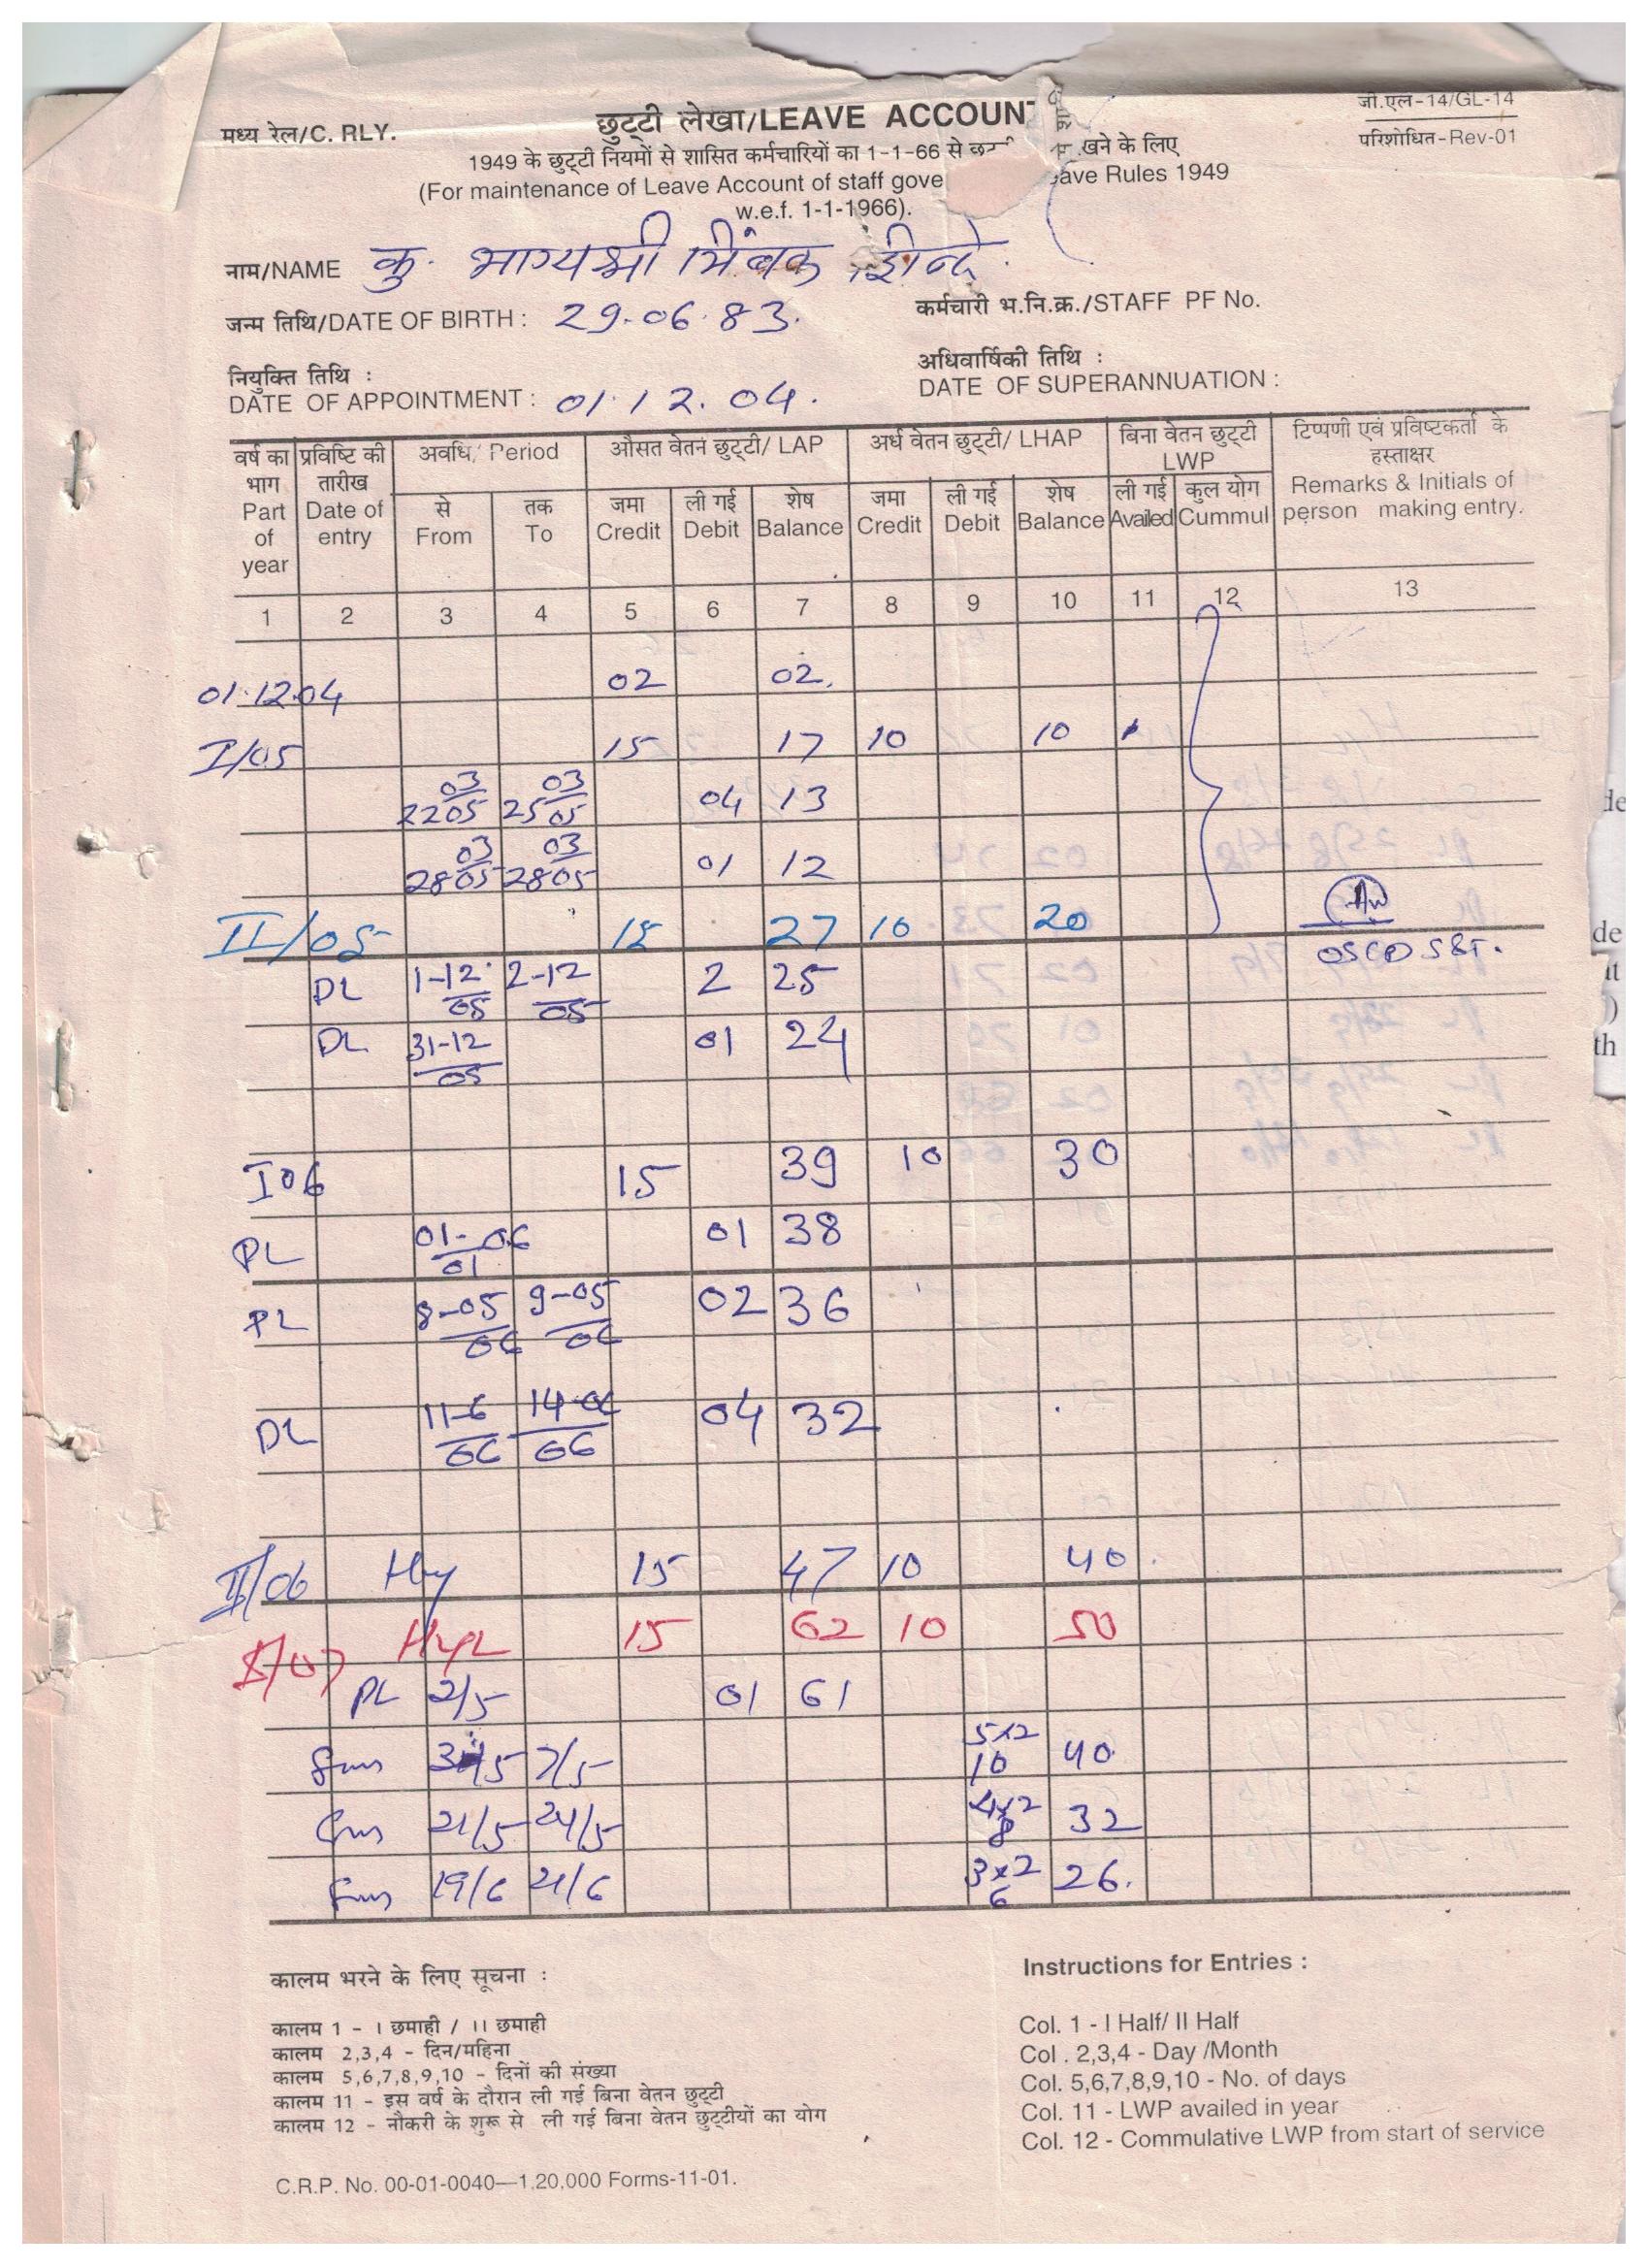 मध्य रेल/C. RLY.
छुट्टी लेखा/LEAVE ACCOUNT
जी.एल-14/GL-14
परिशोधित-Rev-01
1949 के छुट्टी नियमों से शासित कर्मचारियों का 1-1-66 से खने के लिए
(For maintenance of Leave Account of staff gove ave Rules 1949
w.e.f. 1-1-1966).
नाम/NAME कु. भाग्यश्री त्रिंबक शिन्दे.
जन्म तिथि/DATE OF BIRTH : 29.06.83.
कर्मचारी भ.नि.क्र./STAFF PF No.
नियुक्ति तिथि :
DATE OF APPOINTMENT : 01.12.04.
अधिवार्षिकी तिथि :
DATE OF SUPERANNUATION :
वर्ष का भाग Part of year
प्रविष्टि की तारीख Date of entry
अवधि/ Period
औसत वेतन छुट्टी/ LAP
अर्ध वेतन छुट्टी/ LHAP
बिना वेतन छुट्टी LWP
टिप्पणी एवं प्रविष्टकर्ता के हस्ताक्षर Remarks & Initials of person making entry.
से From तक To जमा Credit ली गई Debit शेष Balance जमा Credit ली गई Debit शेष Balance ली गई Availed कुल योग Cummul
1 2 3 4 5 6 7 8 9 10 11 12 13
01.12.04 02 02.
I/05 15 17 10 10
22 03/05 25 03/05 04 13
28 03/05 28 03/05 01 12
II/05 15 27 10 20
OSCD S&T.
DL 1-12/05 2-12/05 2 25
DL 31-12/05 01 24
I 06 15 39 10 30
PL 01-06/01 01 38
PL 8-05/06 9-05/06 02 36
DL 11-6/06 14-06/06 04 32
II/06 15 47 10 40
I/07 HYL 15 62 10 50
PL 2/5 01 61
7/5 5x2 10 40
21/5 24/5 4x2 8 32
19/6 21/6 3x2 6 26.
कालम भरने के लिए सूचना :
कालम 1 - I छमाही / II छमाही
कालम 2,3,4 - दिन/महिना
कालम 5,6,7,8,9,10 - दिनों की संख्या
कालम 11 - इस वर्ष के दौरान ली गई बिना वेतन छुट्टी
कालम 12 - नौकरी के शुरू से ली गई बिना वेतन छुट्टीयों का योग
Instructions for Entries :
Col. 1 - I Half/ II Half
Col . 2,3,4 - Day /Month
Col. 5,6,7,8,9,10 - No. of days
Col. 11 - LWP availed in year
Col. 12 - Commulative LWP from start of service
C.R.P. No. 00-01-0040—1,20,000 Forms-11-01.